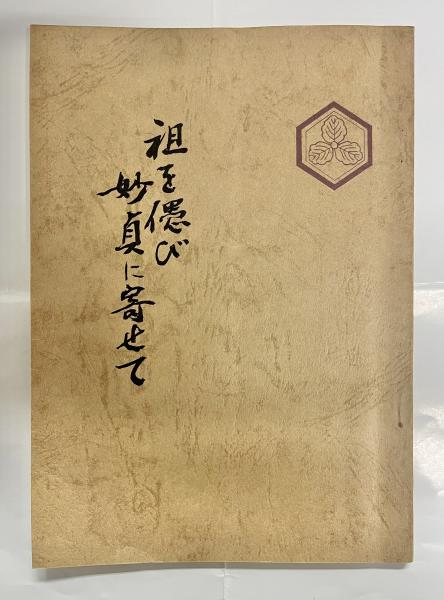 祖を偲び
妙貞に寄せて